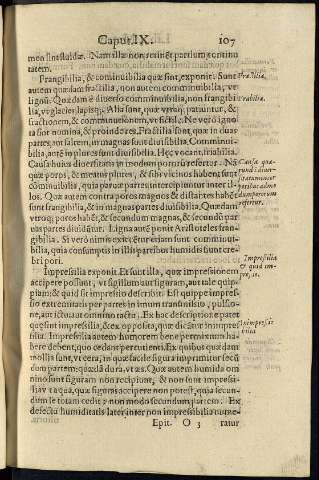 Caput IX. 107
tatem.
Frangibilia, & cominuibilia quæ sint, exponit. Sunt
autem quædam frāgilia, non autem comminuibilia, ve
lignū. Quædam è diuerso comminuibilia, non frangibi
lia, vt glacies, lapis. Alia sunt, quæ vtrūq; patiuntur, &
fractionem, & comminutionem, vt fictile.
tas sint nomina, & proinde res. Frāgilia sunt, quæ in duas
partes, aut saltem, in magnas sunt diuisibilia. Comminui-
bilia, autē in plures sunt diuisibilia. Hęc vocant, friabilia.
Causa huius diuersitatis in modum pororū refertur. Nā
quæ poros, & meatus plures, & sibi vicinos habent, sunt
cōminuibilia, quia paruæ partes intercipiuntur inter il-
los. Quæ autem contra poros magnos & distantes habēt
sunt frangibilia, & in magnas partes diuisibilia. Quædam
vtroq; poros habēt, & secundum magnas, & secundū par
uas partes diuidūtur. Ligna autē ponit Aristoteles fran-
gibilia. Si verò nimis exiccētur etiam sunt comminui-
bilia, quia consumptis in illis partibus humidis sunt cre
bri pori.
Impressilia exponit. Et sunt illa, quæ impressionem
accipere possunt, vt sigillum aut figuram, aut tale quip-
piam: & quid sit impressio describit. Est quippe impres-
sio extremitatis per partes in imum transmissio, pulsio-
ne, aut ictu, aut omnino tactu. Ex hac descriptione patet
quę sint impressilia, & ex opposita, quæ dicātur inimpres
silia. Impressilia autem humorem bene permixtum ha-
bere debent, quo cedant percutienti. Ex quibus quædam
mollia sunt, vt cera, in quæ facile figura imprimitur secū
dum partem: quædā dura, vt æs. Quæ autem humida om
nino sunt figuram non recipiunt, & non sunt impressi-
lia, vt aqua, quæ figuras accipere non potest, quia secun-
dum se totam cedit, & non modo secundum partem. Ex
defectu humiditatis later, inter non impressibilia nume-
Epit. O 3 ratur
Frāgilia.
Friabilia.
Causa quæ-
Impressilia
& quid im-
Inimpressi
bilia